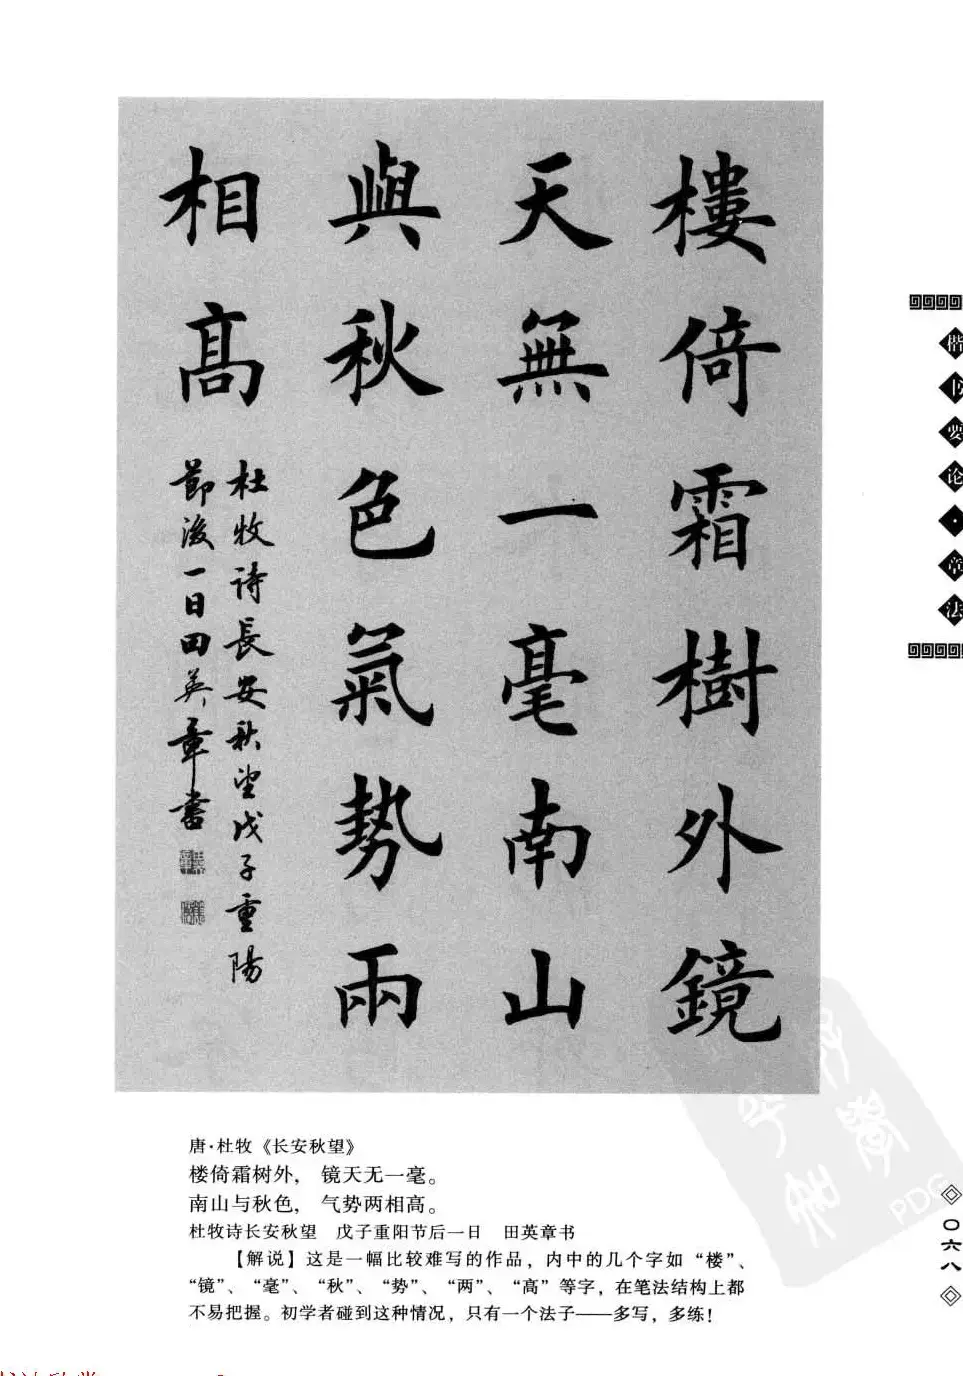 樓倚霜樹外鏡
天無一毫南山
與秋色氣勢兩
相高
杜牧诗長安秋望戊子重陽
節後一日田英章書
楷书要论·章法
唐·杜牧《长安秋望》
楼倚霜树外，镜天无一毫。
南山与秋色，气势两相高。
杜牧诗长安秋望 戊子重阳节后一日 田英章书
【解说】这是一幅比较难写的作品，内中的几个字如“楼”、
“镜”、“毫”、“秋”、“势”、“两”、“高”等字，在笔法结构上都
不易把握。初学者碰到这种情况，只有一个法子——多写，多练！
〇六八
PDG